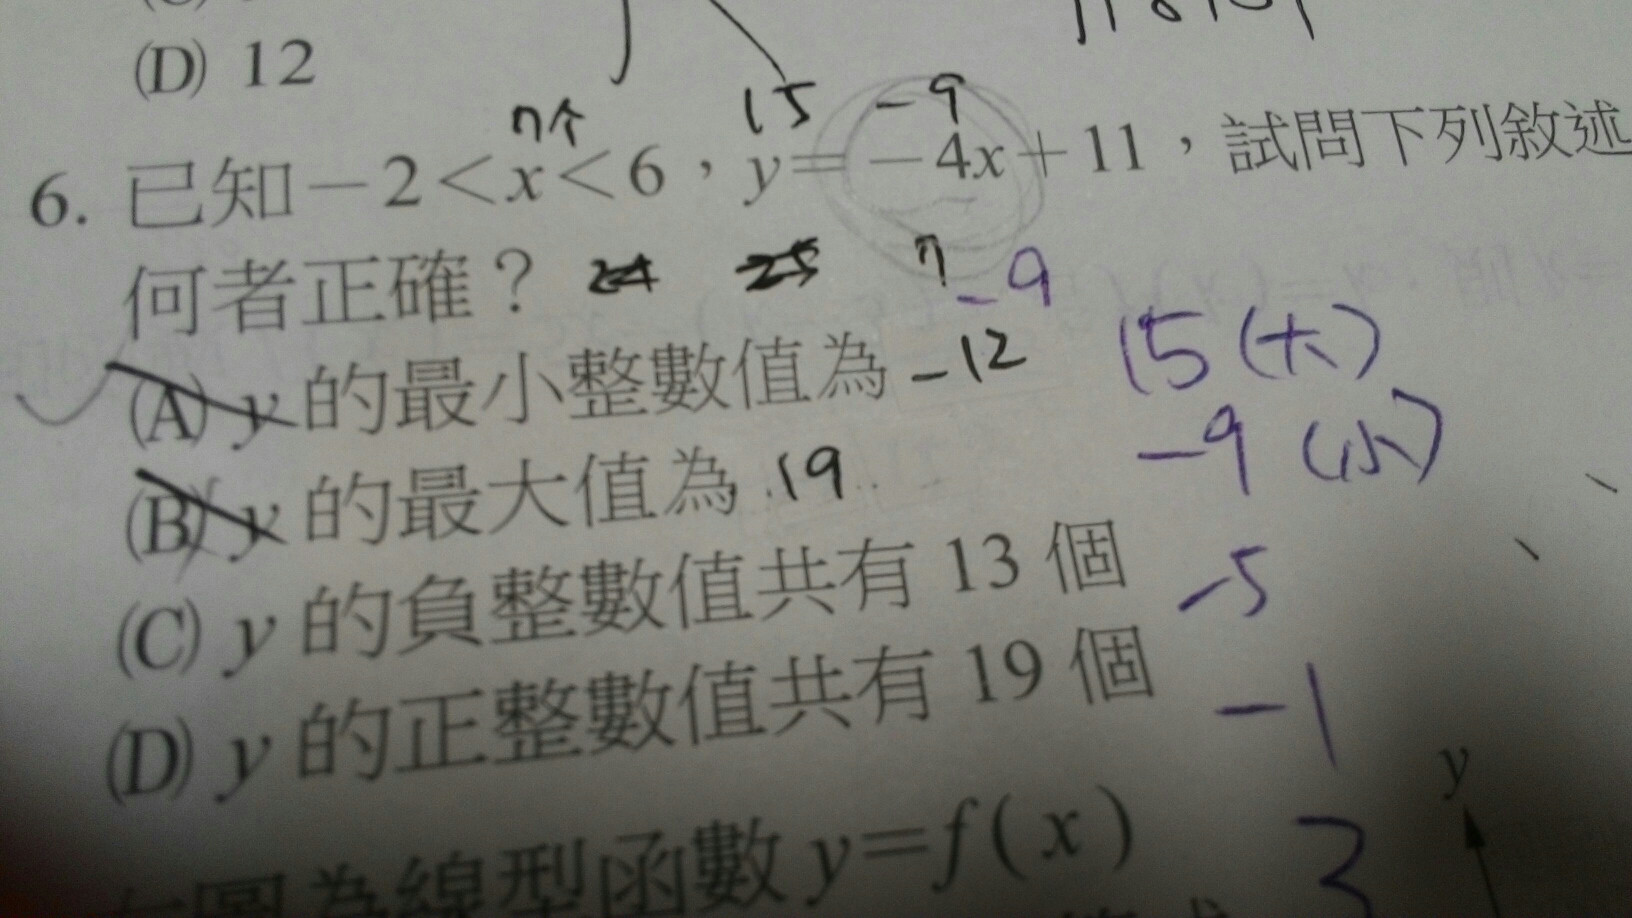 (D) 12
7个 15 -9
6. 已知－2＜x＜6，y＝－4x＋11，試問下列敘述
何者正確？ 24 25 7
-9
(A) y 的最小整數值為 -12 15 (大)
(B) y 的最大值為 19 -9 (小)
(C) y 的負整數值共有 13 個 -5
(D) y 的正整數值共有 19 個 -1
y
圖為線型函數 y＝f(x) 3